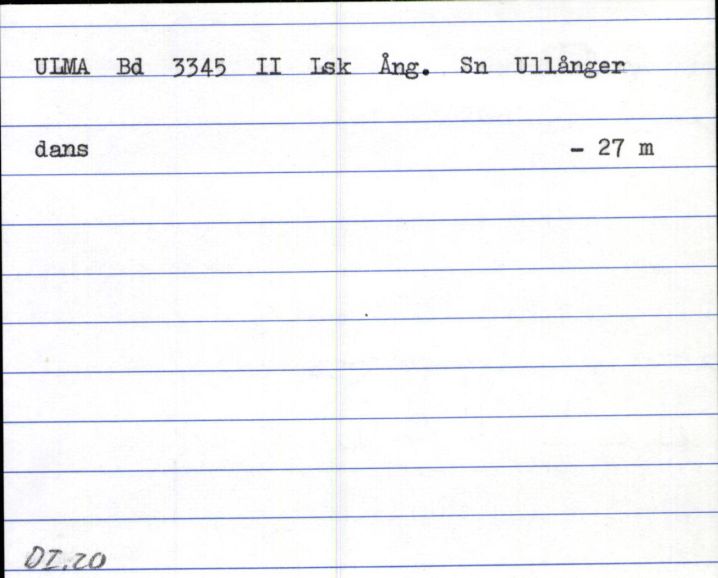 ULMA Bd 3345 II Lsk Ång. Sn Ullånger
dans - 27 m
DI.20